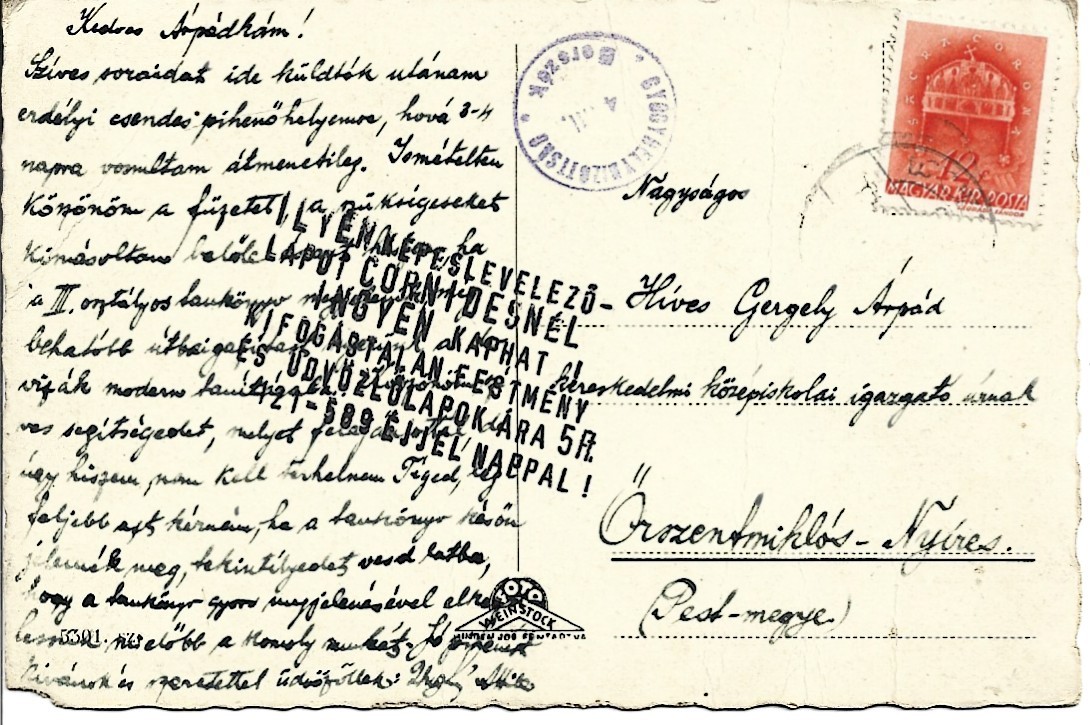 Kedves Árpádkám!
Szíves soraidat ide küldték utánam
erdélyi csendes pihenőhelyemre, hová 3-4
napra vonultam átmenetileg. Ismételten
köszönöm a füzetet, a szükségeseket
kimásoltam belőle ha
a III. osztályos tankönyv
behatóbb
vizsgák modern
ves segítségedet, melyet
úgy hiszem, nem kell terhelnem Téged, leg
feljebb azt kérném, ha a tankönyv későn
jelennék meg, tekintélyedet vesd latba,
hogy a tankönyv gyors megjelenésével
mielőbb a komoly munkát. Jó pihenést
kívánok és szeretettel üdvözöllek:
ILYEN KÉPESLEVELEZŐ-
LAPOT CORNIDESNÉL
INGYEN KAPHAT!
KIFOGÁSTALAN FESTMÉNY
ÉS ÜDVÖZLŐLAPOK ÁRA 5 Ft.
21-589 ÉJJEL NAPPAL!
GYÓGYHELYBIZOTTSÁG
Borszék
CORONA
MAGYAR KIR. POSTA
Nagyságos
Híves Gergely Árpád
kereskedelmi középiskolai igazgató úrnak
Őrszentmiklós-Nyíres.
(Pest-megye)
FOTO
WEINSTOCK
MINDEN JOG FENTARTVA
3301